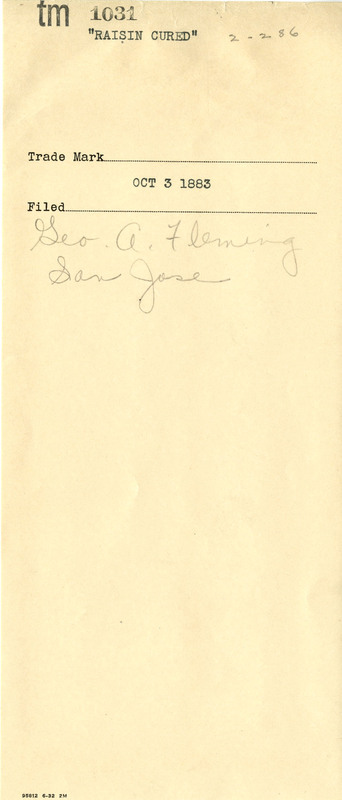 tm 1031
"RAISIN CURED" 2-286
Trade Mark
OCT 3 1883
Filed
Geo. A. Fleming
San Jose
95912 6-32 2M